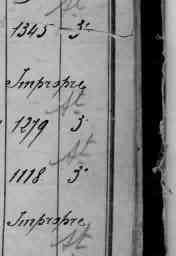 1345 3
Impropre
St
1279 3
St
1118 3
Impropre
St